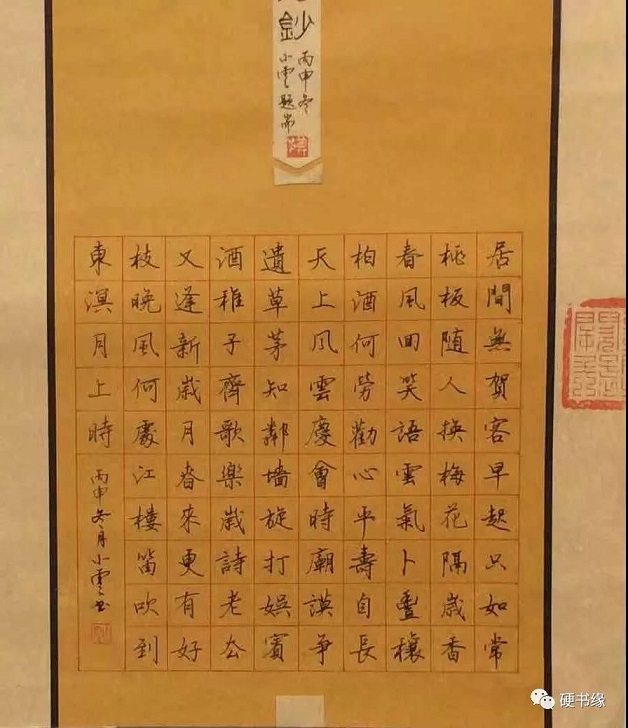 鈔
丙申冬
小雲題耑
居間無賀客早起只如常
桃板随人換梅花隔歲香
春風回笑語雲氣卜豊穰
柏酒何勞勸心平壽自長
天上風雲慶會時廟謨爭
遺草茅知鄰墻旋打娯賓
酒稚子齊歌樂歲詩老去
又逢新歲月春來更有好
枝晩風何處江樓笛吹到
東溟月上時
丙申冬月小雲書
硬书缘